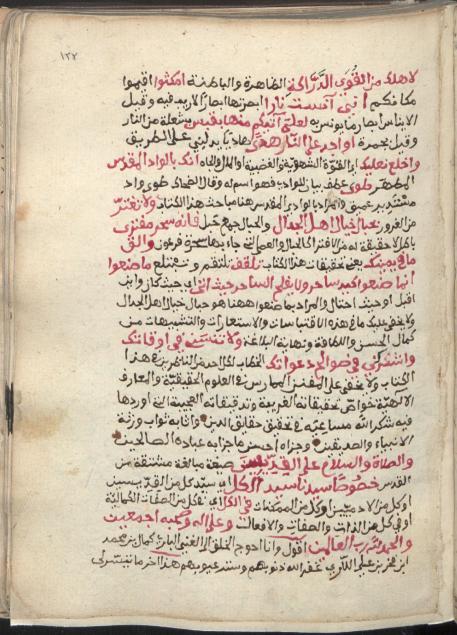 ١٢٢
لاهلك من القوى الدَّرَّاكة الظاهرة والباطنة امكثوا اقيموا
مكانكم اني آنست نارا ابصرتها ابصارا لا ريب فيه وقيل
الايناس ابصار ما يونس به لعلي آتيكم منها بقبس بشعلة من النار
وقيل بجمرة او اجد على النار هدى هاديا يدلني على الطريق
واخلع نعليك اي القوة الشهوية والغضبية او المال والجاه انك بالواد المقدس
المطهر طوى عطف بيان للوادي فهو اسم له وقال الضحاك طوى واد
مستدير عميق والمراد بوادي المقدس هنا مباحث هذا الكتاب ولا تغترّ
من الغرور بحبال خيال اهل الجدال والحبال جمع حبل فانه سحر مفترى
والق
ما في يمينك يعني تحقيقات هذا الكتاب تلقف تلتقم وتبتلع ما صنعوا
انما صنعوا كيد ساحر ولا يفلح الساحر حيث اتى اي حيث كان واين
اقبل او حيث احتال والمراد بما صنعوا ههنا هو حبال خيال اهل الجدال
ولا يخفى عليك ما في هذه الاقتباسات والاستعارات والتشبيهات من
كمال الحسن واللطافة ونهاية البلاغة ولا تنسني في اوقاتك
واشركني في صوالح دعواتك الخطاب لكل احد من الناظرين في هذا
الكتاب ولا يخفى على المتفنن الممارس في العلوم الحقيقية والمعارف
الالهية خواص تحقيقاته الغريبة وتدقيقاته العجيبة التي اوردها
فيه شكر الله مساعيه في تحقيق حقايق الدين واثابه ثواب وزنة
الانبياء والصديقين وجزاه احسن ما جزا به عباده الصالحين
والصلاة والسلام على القديسين صيغة مبالغة مشتقة من
القدس خصوصا سيدنا سيد الكل اي سيد كل من القديسين
او كل من الادميين او كل من الممكنات في الكل اي في كل من الصفات الكمالية
او في كل من الذات والصفات والافعال وعلى اله وصحبه اجمعين
والحمد لله رب العالمين اقول وانا احوج الخلق الى الغني البارئ كمال بن محمد
بن فخر بن علي اللاري غفر الله ذنوبهم وستر عيوبهم هذا اخر ما تيسر لي